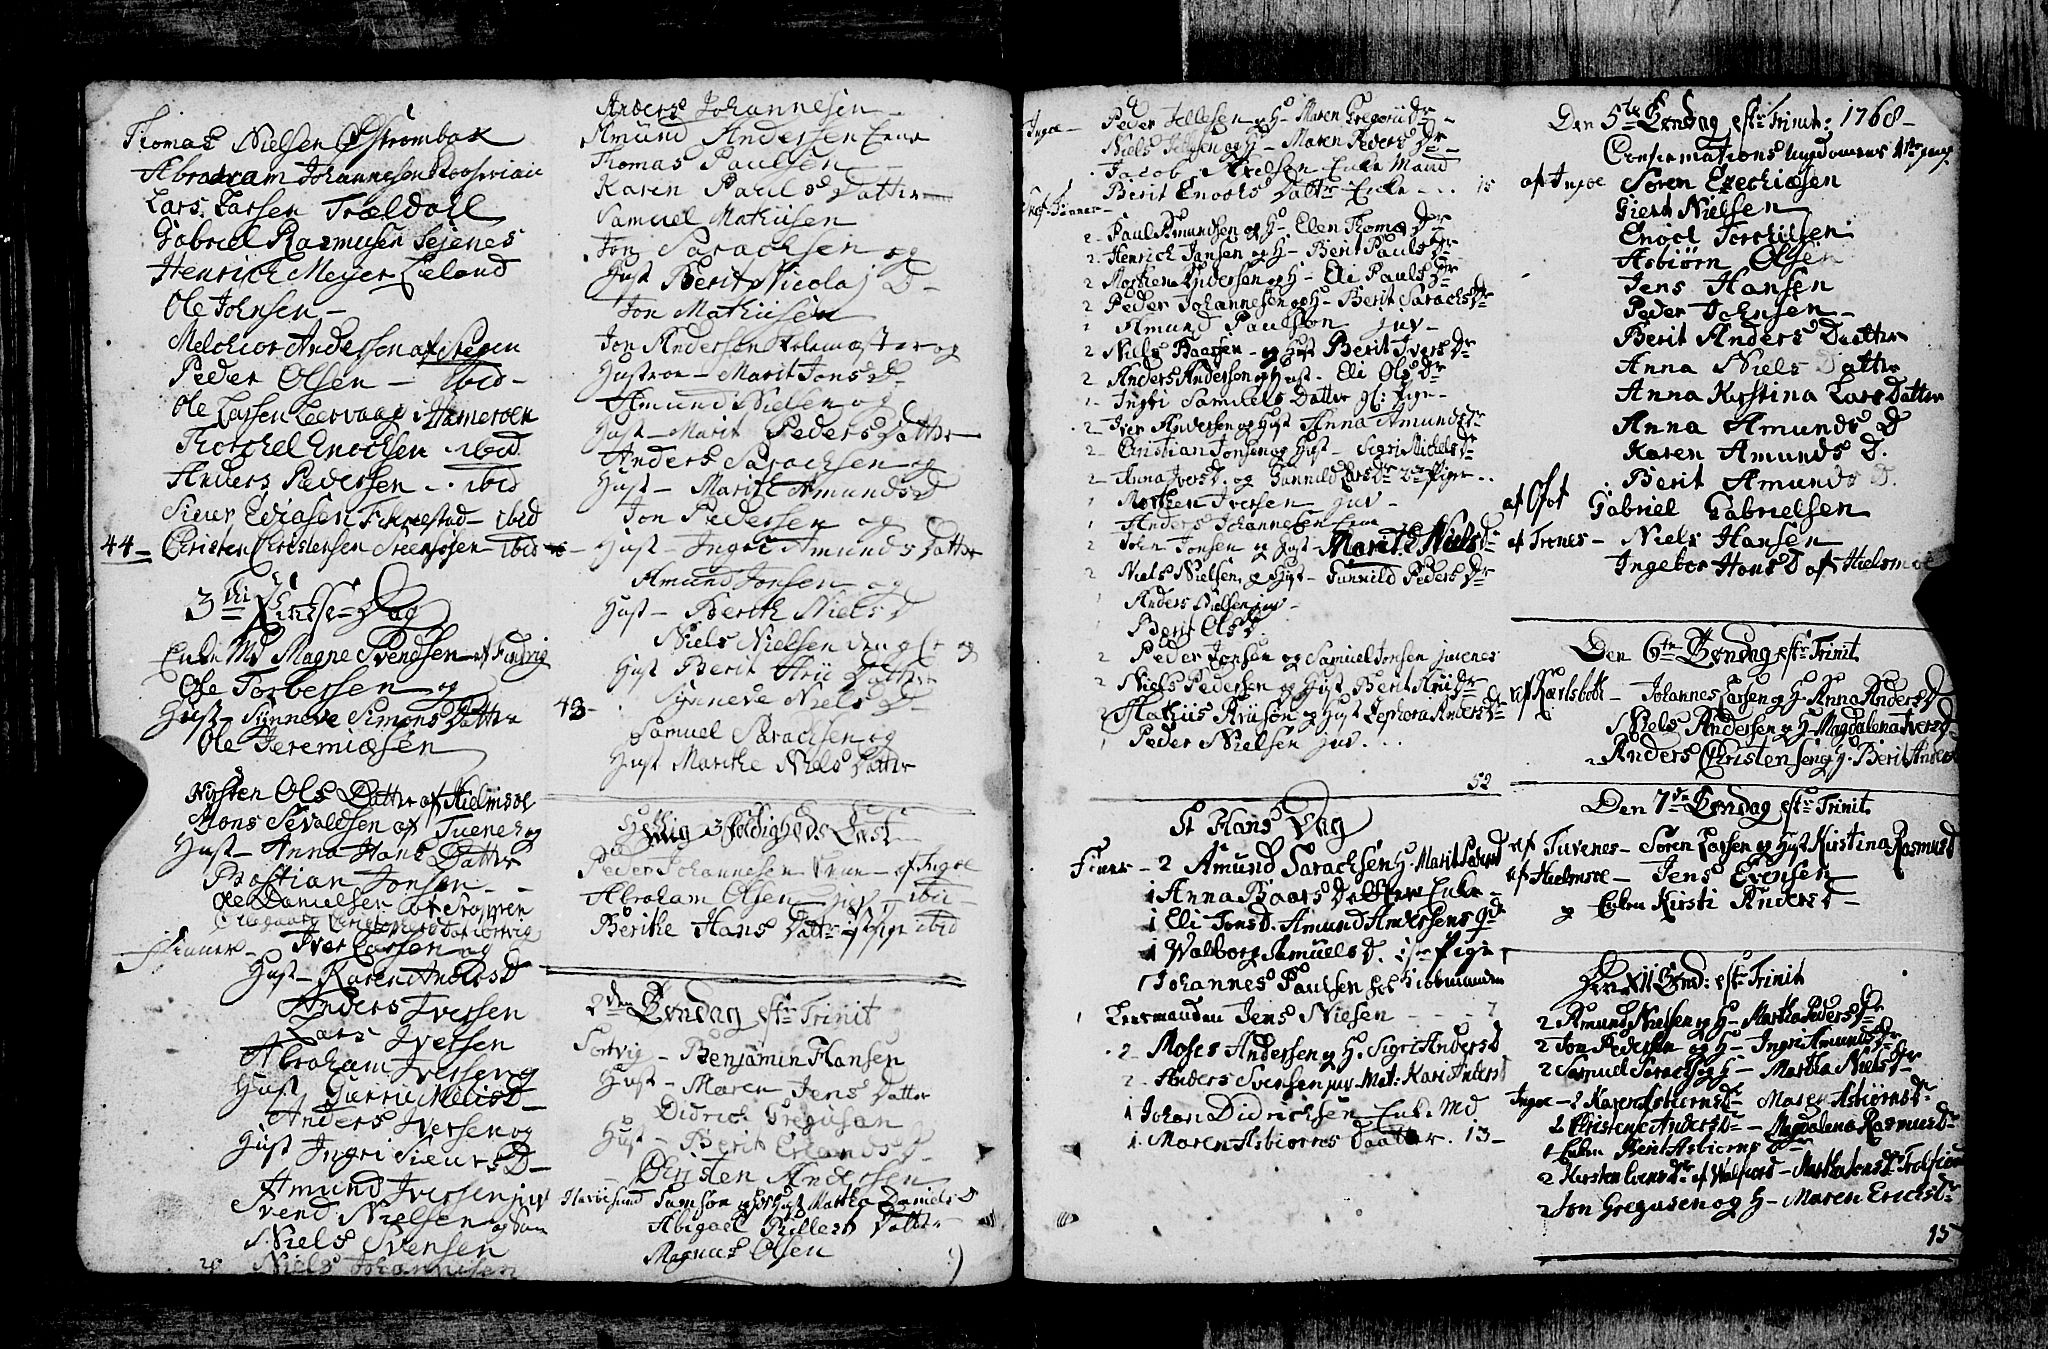 Thomas Nielsen Strømbak
Abraham Johannesen
Lars Larsen Trældall
Gabriel Rasmusen Sejenes
Henrich Meyer Lieland
Ole Johnsen -
Melchior Andersen af Stegen
Peder Olsen - Ibid -
Ole Larsen Leervaag i Hameroen
Thorchel Enochsen ibid
Anders Pedersen - ibid
Siver Ediasen ibid
44 - Christen Christensen ibid
3die Pindse-Dag
Enke Md Magne Svendsen af
Ole Torbersen og
Hust - Sÿnneve Simons Datter
Ole Jeremiæsen
Kirsten Ols Datter af Hielmsoe
Mons Sevaldsen af Tuenes og
Hust - Anna Hans Datter
Bastian Jonsen - -
Ole Danielsen
Finner - Iver Larsen og
Hust - Karen Anders D
Anders Iversen
Lars Iversen
Abraham Iversen og
Hust Gurru Nielis D -
Anders Iversen og
Hust Ingri Sieurs D -
Amund Iversen juv
Svend Nielsen og Søn
Niels Svensen
Niels Johannesen
Anders Johannesen
Amund Andersen Erne
Thomas Paulsen
Karen Pauls Datter
Samuel Mathisen
Jon Sarachsen og
Hust Berit Nicolaj D -
Jon Mathisen
Jon Andersen Skolemaster og
Hustroe - Marit Jons D
Amund Nielsen og
Hust - Marit Peders Datter
Anders Sarachsen og
Hust - Marith Amunds D
Jon Pedersen og
Hust - Ingri Amunds Datter
Amund Jonsen og
Hust - Berith Niels D
Niels Nielsen den gl: og
Hust Berit Arii Datter
43 - Sÿnneve Niels D -
Samuel Sarachsen og
Hust Marithe Niels Datter
Hellig 3 foldigheds Fest
Peder Johannesen - af Ingoe
Abraham Olsen juv - ibid
Berithe Hans Datter Pige ibid
2den Søndag eftr Trinit
Sortvig - Benjamin Hansen
Hust - Maren Jens Datter
Didrich Gregusen
Hust - Berit Erlands D
Christen Andersen
Havøesund Samson og Hust Martha Daniels D
Abigael Pillers Datter
Magnus Olsen
Ingoe - Peder Jellesen og H - Maren Gregorii Dr -
Niels Jellesen og H - Maren Peders Dr -
Jacob Axelsen Enke Mand
Berit Enochs Datter Enke - - - 15
Finner -
2 - Paul Amundsen og H - Elen Thomæ Dr
2 - Henrich Jansen og H - Berit Pauls Dr
2 Morten Andersen og H - Eli Pauls Dr
2 Peder Johannesen og H - Berit Sarachs Dr
1 Amund Paulson juv -
2 Niels Baarsen - og Hust Berit Ivers Dr
2 Anders Andersen og Hust - Eli Ols Dr
1 - Ingri Samuels Datter gl: Pige -
2 Iver Andersen og Hust Anna Amunds Dr
2 - Christian Jonsen og Hust - Sigri Michels Dr
2 Anna Ivers D. og Gunnild Lars Dr 2de Piger - -
1 Morthen Iversen juv -
1 Anders Johannesen Erne
2 John Jonsen og Hust Marith Niels Dr
2 Niels Nielsen og Hust - Gunnild Peders Dr
1 Anders Nielsen juv -
1 Berit Ols D.
2 Peder Jonsen og Samuel Jonsen juvenes
2 Niels Pedersen og Hust Berit Arii Dr
2 Mathiis Ariison og Hust Zephora Anders Dr
1 Peder Nielsen juv - - -
52
St Hans Dag
Finner - 2 Amund Sarachsen H - Marit
1 Anna Baars Datter Enke -
1 Eli Jons D. Amund Andersens
1 Walborg Samuels D. Pige
1 Johannes Paulsen
1 Leensmanden Jens Nielsen - - - 7
2 - Moses Andersen og H. Sigri Anders D
2 - Anders Svensen juv Mat: Kari Anders D
1 Johan Didrichsen Enke Md
1 - Maren Asbiørns Daatter. 13 -
Den 5te Søndag eftr Trinit: 1768 -
Confirmations Ungdomens 1te gang
af Ingoe Søren Ezechiæsen
Giert Nielsen
Enoch Torchilsen
Asbiørn Olsen
Jens Hansen
Peder Johnsen -
Berit Anders Datter
Anna Niels Datter
Anna Kirstina Lars Datter
Anna Amunds D
Karen Amunds D.
Berit Amunds D.
af Ofot Gabriel Gabrielsen
af Trenes - Niels Hansen
Ingebor Hans D af Hielmsoe
Den 6te Søndag eftr Trinit
af Karlsboth - Johannes Larsen og H. Anna Anders D
Niels Andersen og H - Magdalena Ivers D
Anders Christensen og H. Berit Anders
Den 7de Søndag eftr Trinit
af Tuvenes - Søren Larsen og Hust Kirstina Rasmus D
af Hielmsoe - Jens Evensen
og Enken Kirsti Anders D -
Den XII Sønd: eftr Trinit
2 Amund Nielsen og H - Martha Peders Dr
2 Jon Pedersen og H - Ingri Amunds Dr
2 Samuel Sarachs og H - Martha Niels Dr
Ingoe - 2 Karen Asbiørns Dr Maren Asbiørns Dr
2 Christene Anders Dr - Magdalena Rasmus Dr
1 Enken Berit Asbiørns Dr
2 Kirsten Evens Dr af - Martha Jons Dr
2 Jon Gregusen og H - Maren Erichs Dr
15